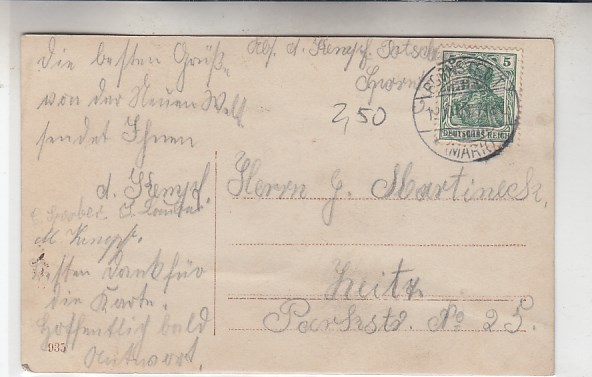 die besten Grüße
von der Neuen Welt
sendet Ihnen
d. Kempf.
M. Kempf.
besten Dank für
die Karte.
Hoffentlich bald
Antwort.
935
Abs. d. Kempf.
2,50
5
DEUTSCHES REICH
(MARK)
Herrn G. Martineck,
Zeitz
Parkstr. No 25.